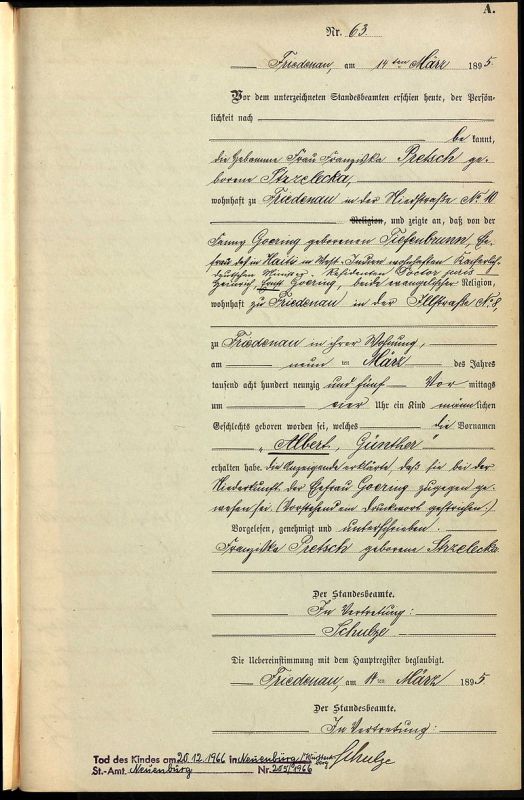 A.
Nr. 63.
Friedenau, am 14 ten März 1895.
Vor dem unterzeichneten Standesbeamten erschien heute, der Persön-
lichkeit nach
be kannt,
die Hebamme Frau Franziska Pretsch ge-
borene Strzelecka,
wohnhaft zu Friedenau in der Niedstraße No 10
Religion, und zeigte an, daß von der
Fanny Goering geborenen Tiefenbrunn, Ehe-
frau des in Haiti in West-Indien wohnhaften Kaiserlich
deutschen Minister-Residenten Doctor juris
Heinrich, Ernst Goering, beide evangelischer Religion,
wohnhaft zu Friedenau in der Illstraße No 8,
zu Friedenau in ihrer Wohnung,
am neun ten März des Jahres
tausend acht hundert neunzig und fünf Vor mittags
um vier Uhr ein Kind männlichen
Geschlechts geboren worden sei, welches die Vornamen
„Albert, Günther“
erhalten habe. Die Anzeigende erklärte, daß sie bei der
Niederkunft der Ehefrau Goering zugegen ge-
wesen sei. (Vorstehend ein Druckwort gestrichen.)
Vorgelesen, genehmigt und unterschrieben.
Franziska Pretsch geborene Strzelecka
Der Standesbeamte.
In Vertretung:
Schulze
Die Uebereinstimmung mit dem Hauptregister beglaubigt.
Friedenau, am 14 ten März 1895
Der Standesbeamte.
In Vertretung:
Schulze
Tod des Kindes am 20.12.1966 in Neuenbürg
St.-Amt. Neuenbürg Nr. /1966